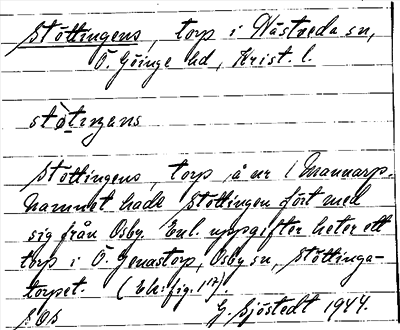 Stöttingens, torp i Hästveda sn,
Ö. Göinge hd, Krist. l.
stòtɪŋens
Stöttingens, torp, å nr 1 Mannarp.
Namnet hade Stöttingen fört med
sig från Osby. Enl. uppgifter heter ett
torp i Ö. Genastorp, Osby sn, Stöttinga-
torpet. (Ek: fig. 117).
G. Sjöstedt 1944.